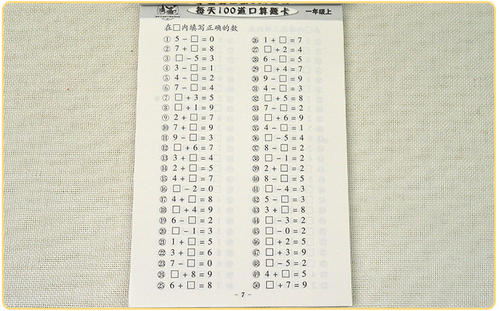 每天100道口算题卡 一年级上
在□内填写正确的数
① 5 - □ = 0
② 7 + □ = 8
③ □ - 5 = 3
④ 3 - □ = 1
⑤ 4 - □ = 2
⑥ 7 - □ = 4
⑦ □ + 3 = 5
⑧ □ + 1 = 9
⑨ 2 + □ = 7
⑩ 7 + □ = 9
⑪ 9 - □ = 3
⑫ □ + 6 = 7
⑬ 3 + □ = 4
⑭ 2 + □ = 5
⑮ 4 + □ = 7
⑯ □ - 2 = 0
⑰ 4 + □ = 8
⑱ □ + 4 = 9
⑲ 6 - □ = 2
⑳ □ - 1 = 3
㉑ 1 + □ = 5
㉒ 3 + □ = 6
㉓ 7 - □ = 0
㉔ □ + 8 = 9
㉕ 6 + □ = 8
㉖ 1 + □ = 7
㉗ □ + 2 = 4
㉘ 6 - □ = 5
㉙ □ + 4 = 7
㉚ 9 - □ = 3
㉛ 4 - □ = 3
㉜ □ + 5 = 8
㉝ 7 - □ = 2
㉞ □ + 6 = 9
㉟ 4 - □ = 1
㊱ □ - 5 = 4
㊲ 8 - □ = 2
㊳ □ - 1 = 2
㊴ 2 + □ = 2
㊵ 8 - □ = 5
㊶ □ - 4 = 3
㊷ 5 - □ = 3
㊸ 3 + □ = 8
㊹ □ - 3 = 2
㊺ □ - 0 = 2
㊻ □ + 2 = 5
㊼ □ + 3 = 9
㊽ □ - 5 = 2
㊾ 4 + □ = 5
㊿ □ + 7 = 9
- 7 -